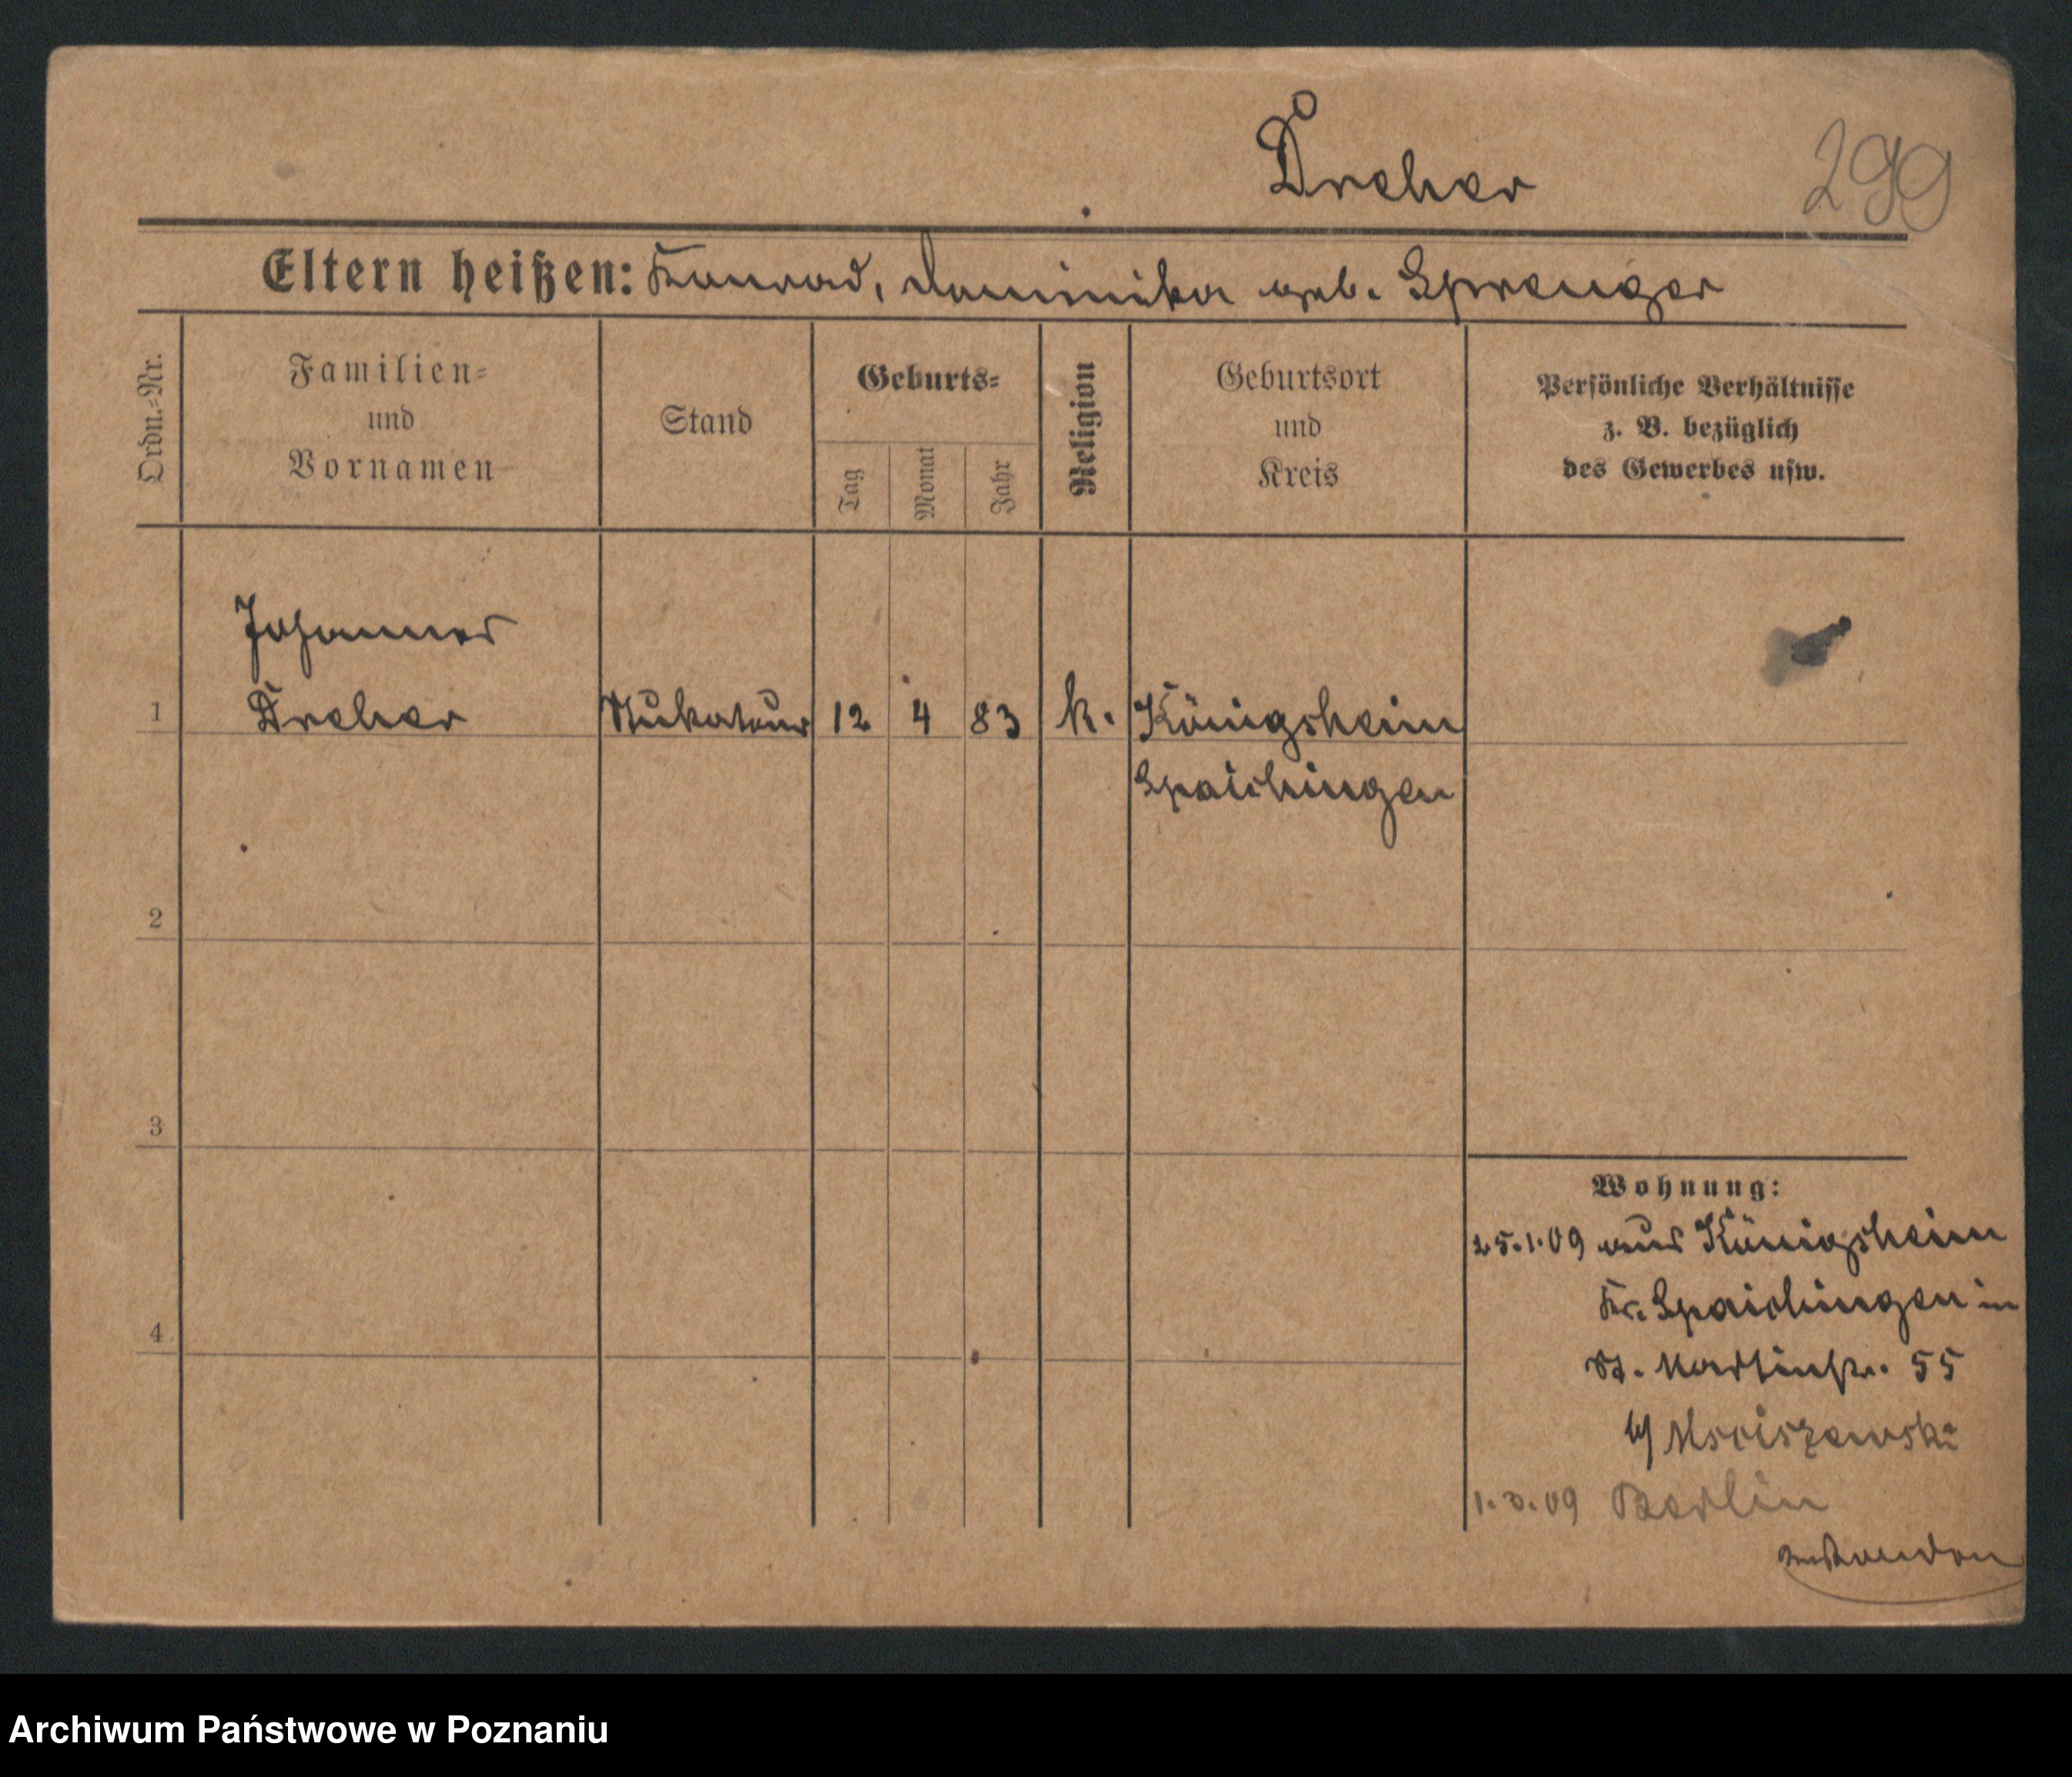 Dreher
299
Eltern heißen: Konrad, Dominika geb. Sprenger
Ordn.=Nr.
Familien=
und
Vornamen
Stand
Geburts=
Tag
Monat
Jahr
Religion
Geburtsort
und
Kreis
Persönliche Verhältnisse
z. B. bezüglich
des Gewerbes usw.
Johannes
1 Dreher Stukateur 12 4 83 k. Königsheim
Spaichingen
2
3
4
Wohnung:
25.1.09 aus Königsheim
Kr. Spaichingen in
St. Martinstr. 55
b/ Msciszewski
1.3.09 Berlin
Archiwum Państwowe w Poznaniu